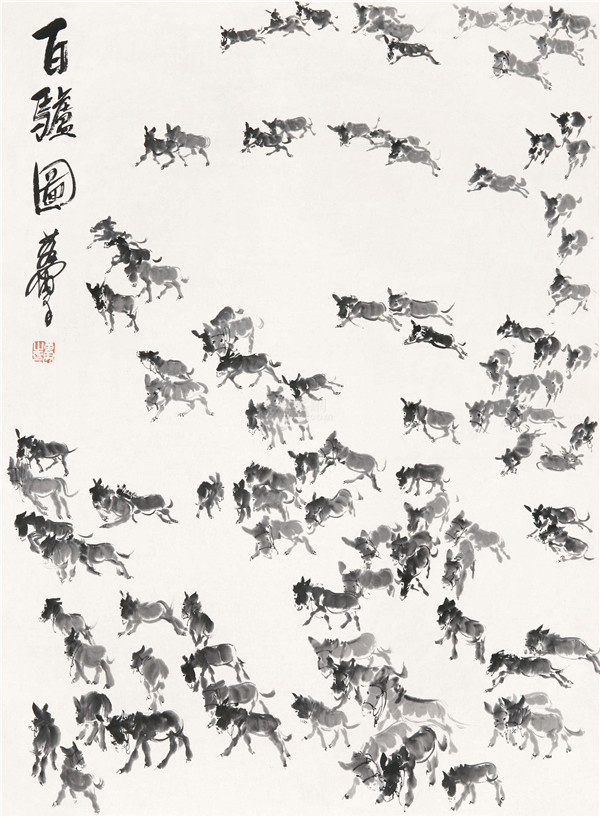 百驢圖
黃胄